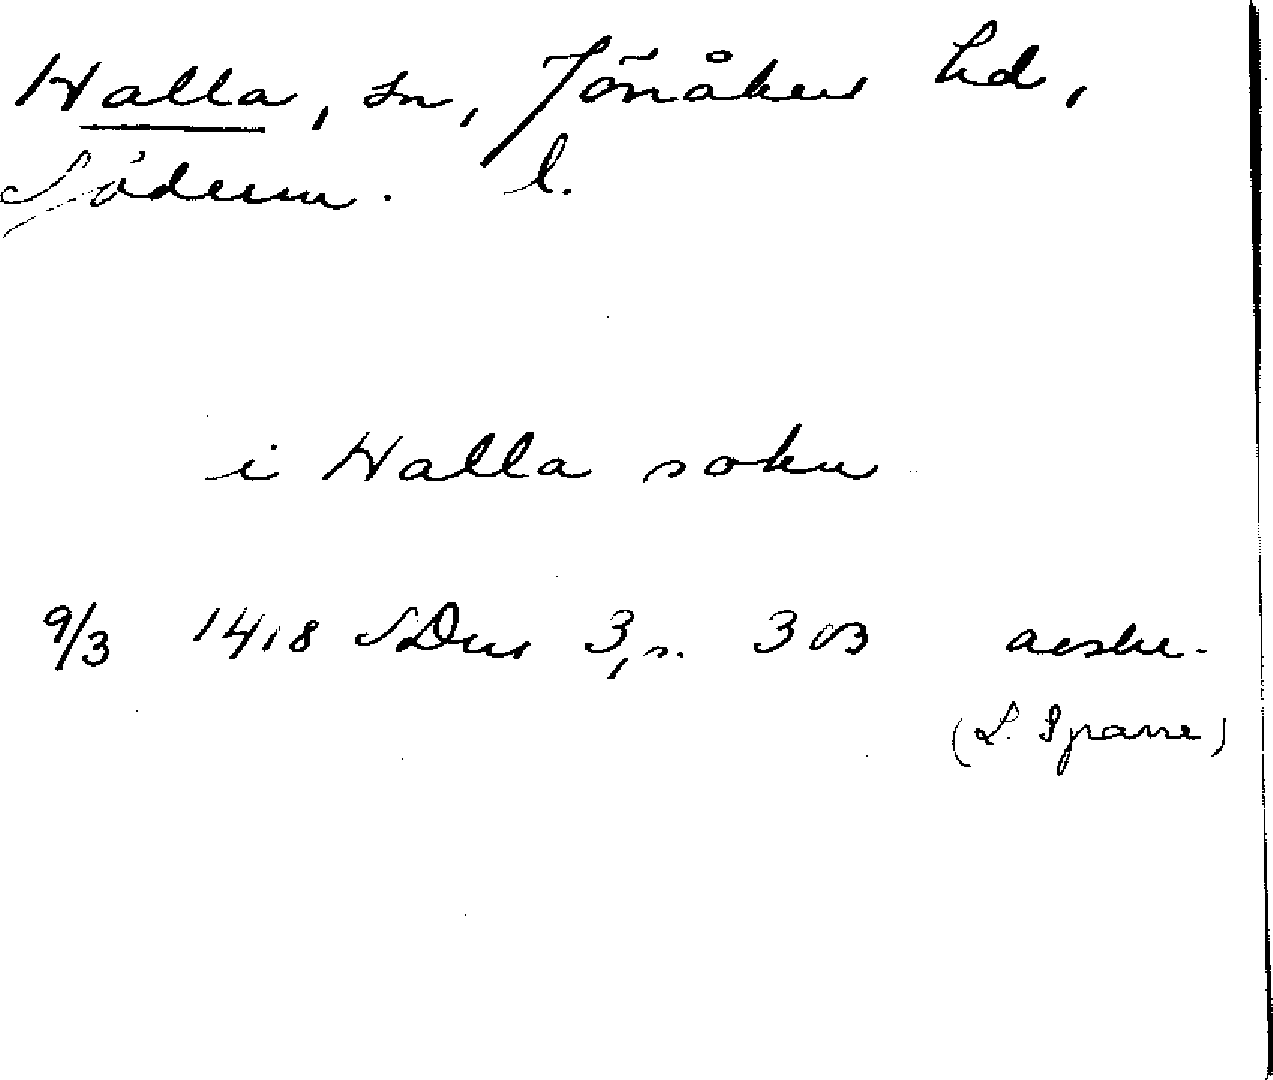 Halla, sn, Jönåkers hd,
Söderm. l.
i Halla sokn
9/3 1418 SDns 3, s. 303 avskr.
(L. Sparre)